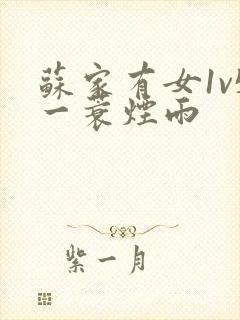 蘇家有女1v
一蓑煙雨
紫一月